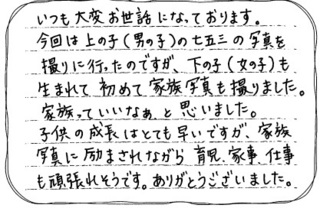 いつも大変お世話になっております。
今回は上の子(男の子)の七五三の写真を
撮りに行ったのですが、下の子(女の子)も
生まれて初めて家族写真も撮りました。
家族っていいなぁと思いました。
子供の成長はとても早いですが、家族
写真に励まされながら育児、家事、仕事
も頑張れそうです。ありがとうございました。